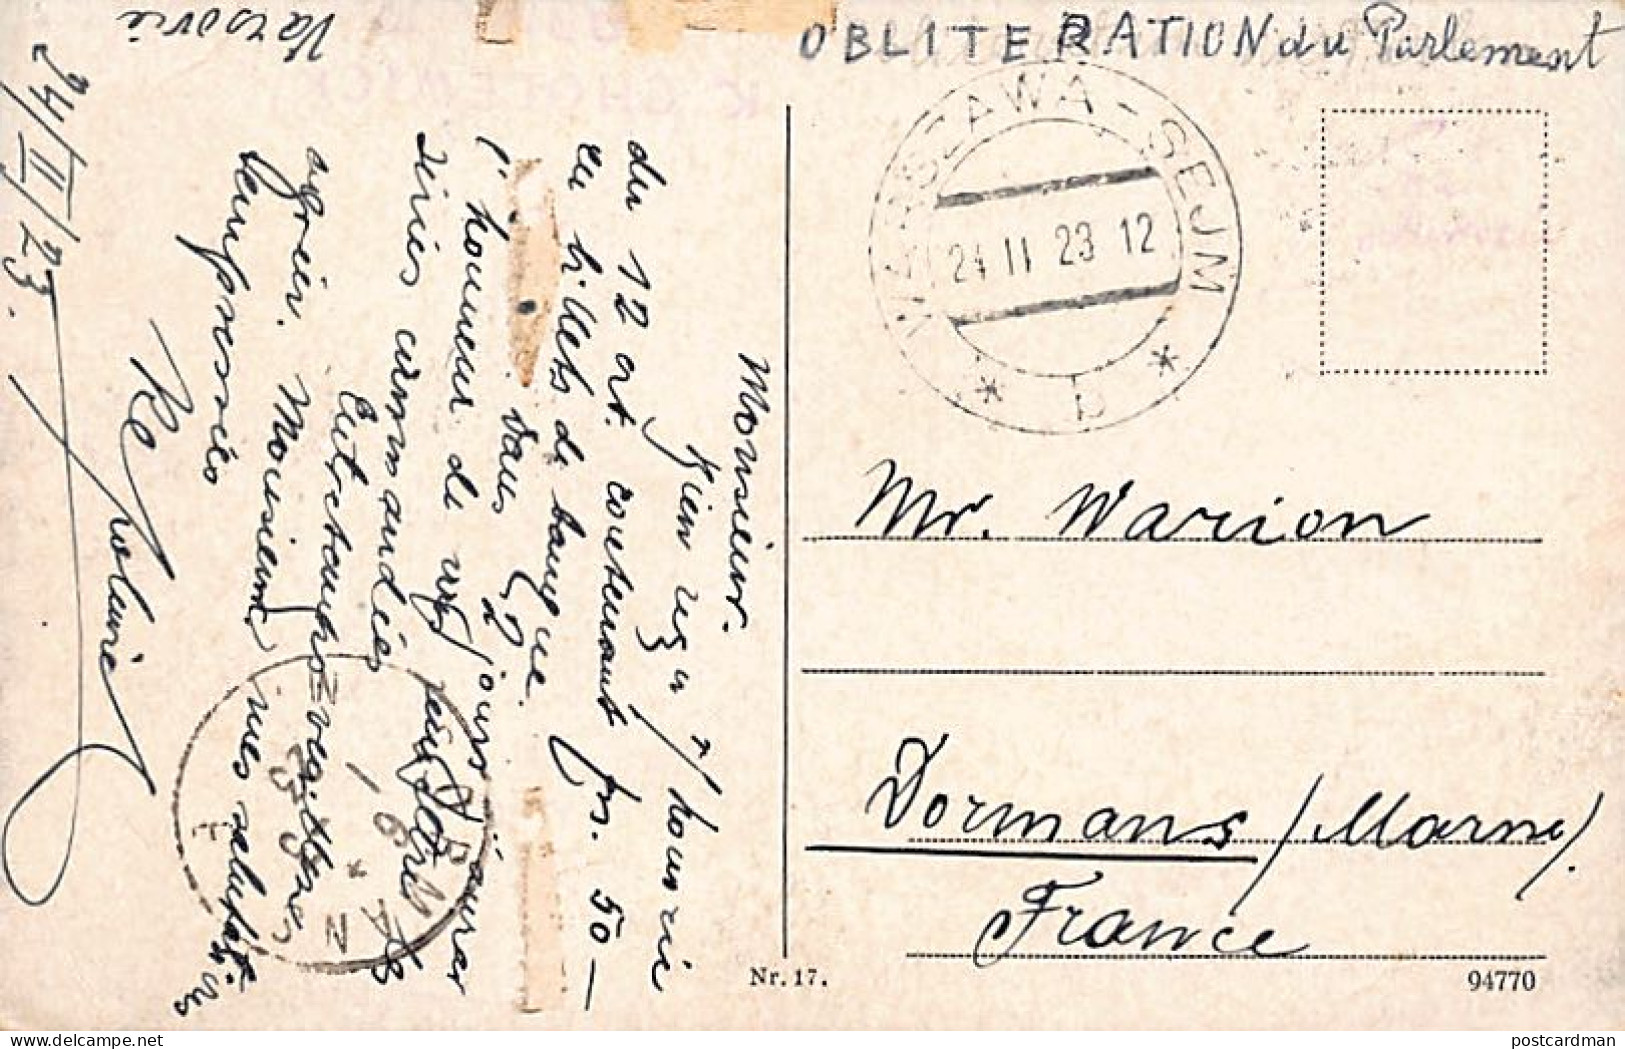 OBLITERATION du Parlement
WARSZAWA-SEJM
24 II 23 12
* b *
Varsovie
24/II/23.
Monsieur.
Bien reçu l'honorée
du 12 crt. contenant frs. 50—
en billets de banque.
Dans 2 jours j'aurai
l'honneur de vous
séries commandées
En attendant veuillez
agréer, Monsieur, mes salutations
empressées
Mr. Warion
Dormans /Marne/.
France
Nr. 17.
94770
postcardman